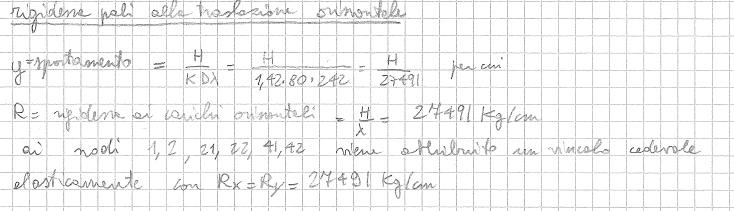 rigidezza pali alla traslazione orizzontale
y = spostamento = H / K D λ = H / 1,42·80·242 = H / 27491 per cui
R = rigidezza ai carichi orizzontali = H / λ = 27491 Kg/cm
ai nodi 1, 2, 21, 22, 41, 42 viene attribuito un vincolo cedevole
elasticamente con Rx = Ry = 27491 Kg/cm